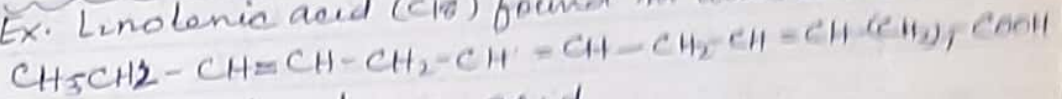 Ex. Linolenic acid (C18) found
CH3CH2 - CH=CH-CH2-CH=CH-CH2-CH=CH(CH2)7COOH
acid